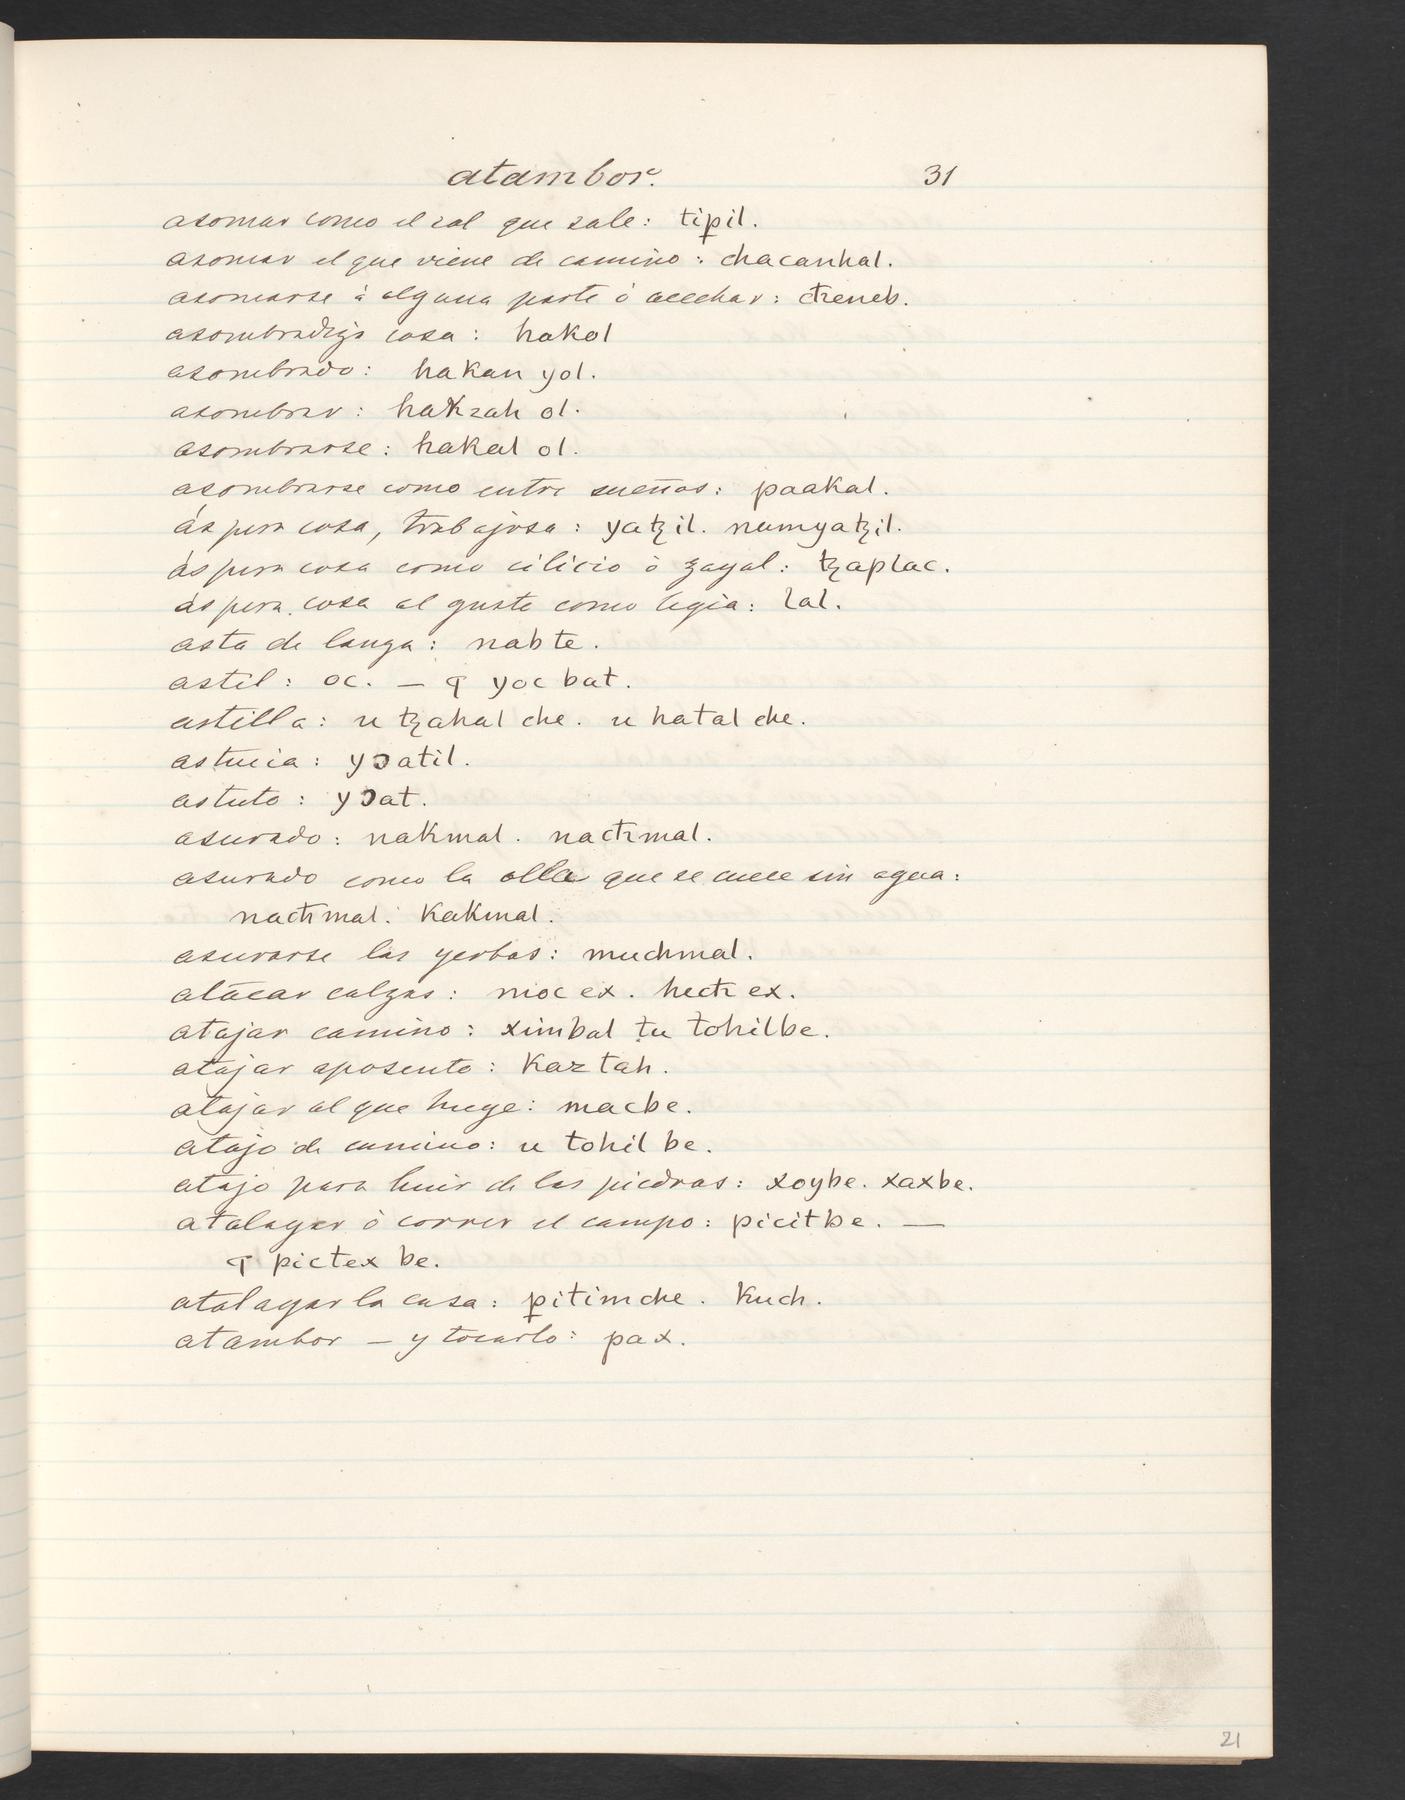 atambor. 31
asomar como el sol que sale: tiꝑil.
asomar el que viene de camino: chacanhal.
asomarse á alguna parte ó acechar: cħeneb.
asombradiza cosa: hakol
asombrado: hakan yol.
asombrar: hakzah ol.
asombrarse: hakal ol.
asombrarse como entre sueños: paakal.
áspera cosa, trabajosa: yatꜩil. numyaꜩil.
áspera cosa como cilicio ò zayal: ꜩaplac.
áspera cosa al gusto como legia: lal.
asta de lanza: nabte.
astil: oc. — ꟼ yoc bat.
astilla: u ꜩahal che. u hatal che.
astucia: yɔatil.
astuto: yɔat.
asurado: nakmal. nacħmal.
asurado como la olla que se cuece sin agua:
nacħmal. kakmal.
asurarse las yerbas: muchmal.
atacar calzas: moc ex. hecħ ex.
atajar camino: ximbal tu tohilbe.
atajar aposento: kaztah.
atajar al que huye: macbe.
atajo de camino: u tohil be.
atajo para huir de las piedras: xoybe. xaxbe.
atalayar ò correr el campo: picitbe. —
ꟼ pictex be.
atalayar la casa: ꝑitimche. kuch.
atambor — y tocarlo: pax.
21